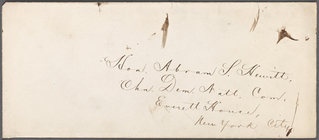 Hon. Abram S. Hewitt.
Chn Dem. Natl. Com.
Everett House,
New York City